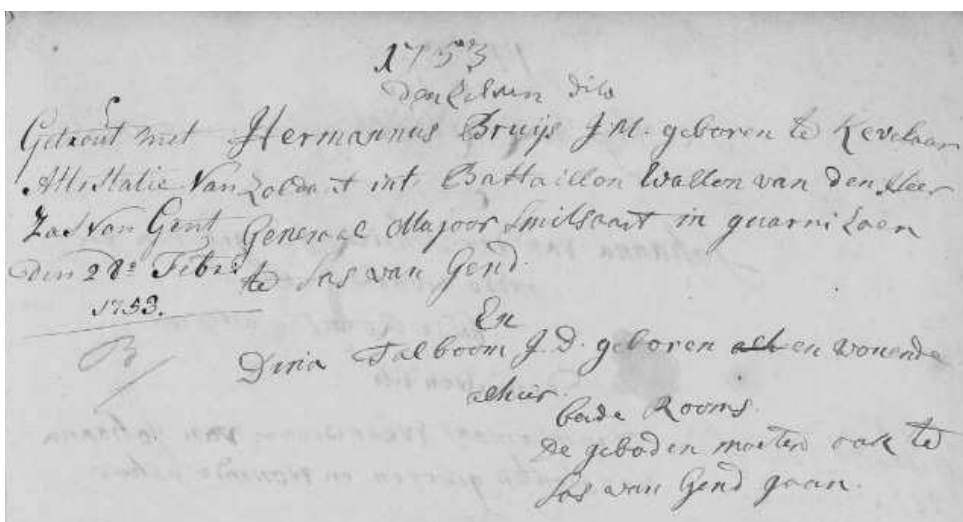 1753
den Selven dito
Getrout met
Attestatie Van
Zas van Gent
den 28e Febr:
1753.
Hermannus Bruijs J.M. geboren te Kevelaar
Zoldaat int Battaillon Wallen van den Heer
Generael Majoor Smitsaart in guarnizoen
te Sas van Gend.
En
Dina Talboom J.D. geboren en wonende
alhier.
beide Rooms.
de geboden moeten ook te
Sas van Gend gaan.